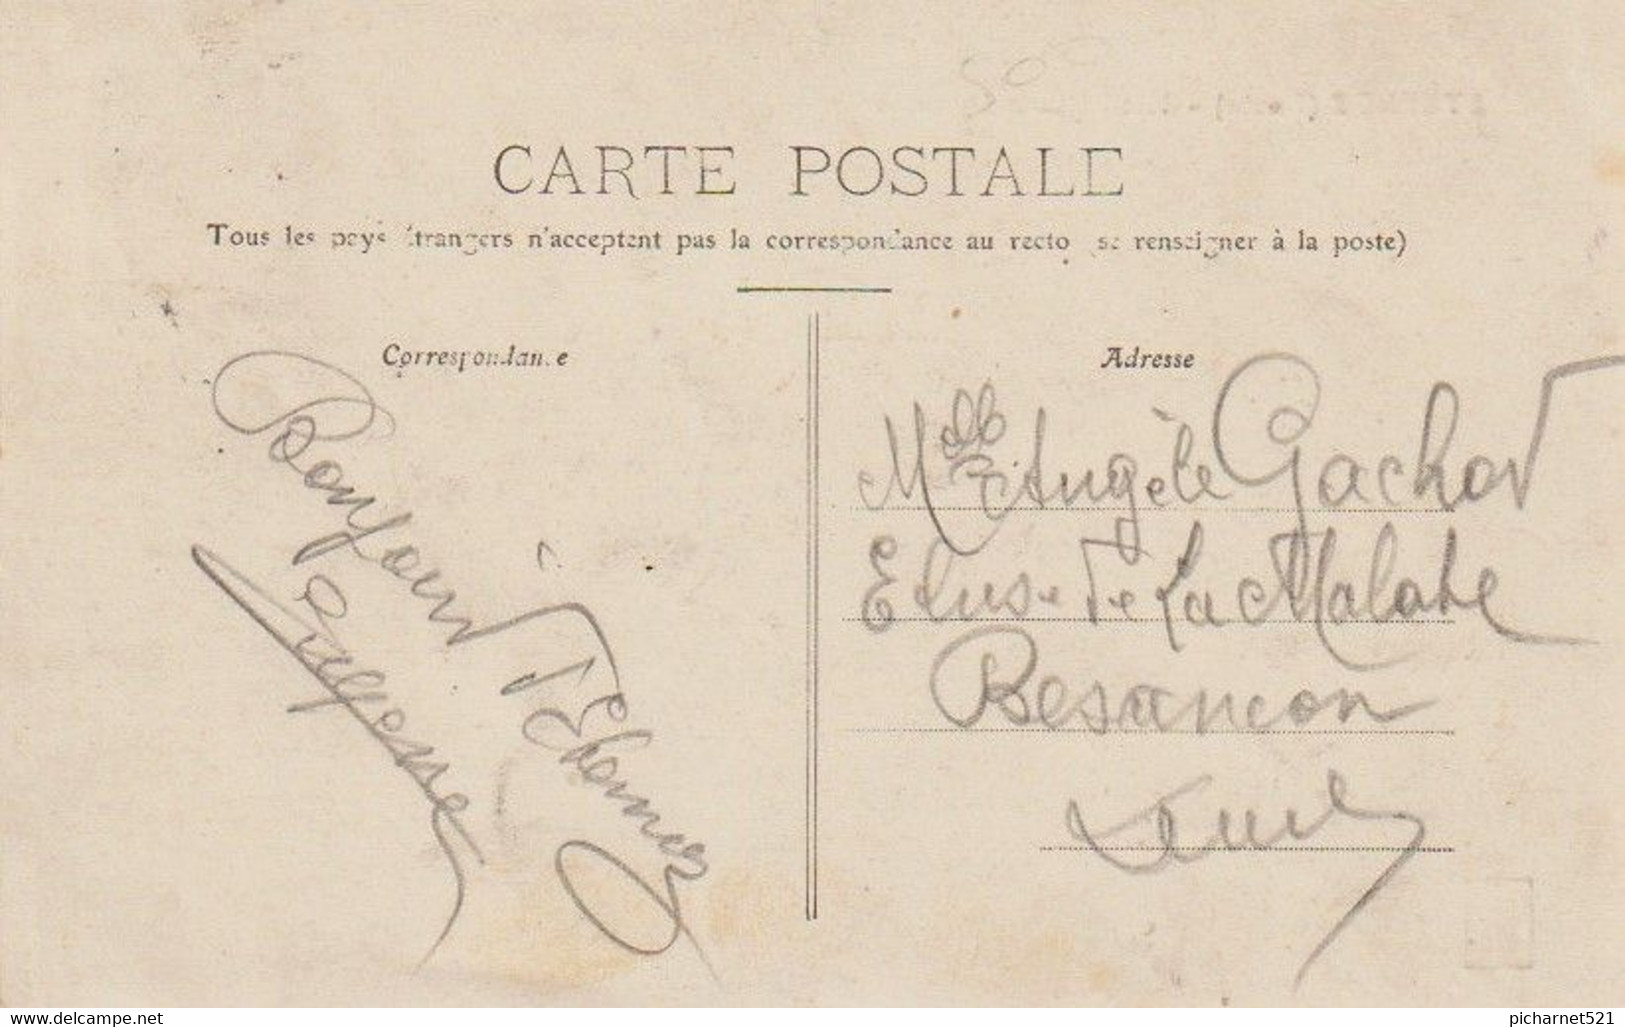 CARTE POSTALE
Tous les pays étrangers n'acceptent pas la correspondance au recto se renseigner à la poste)
Correspondance
Bonjour d'Ethomez
Adresse
Mlle Angèle Gachot
Ecluse de La Malate
Besancon
www.delcampe.net
picharnet521